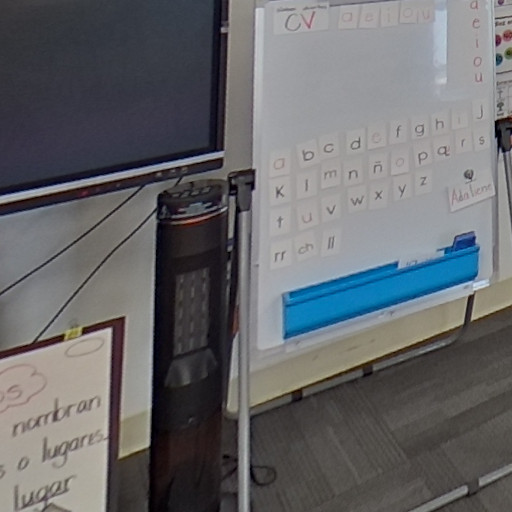 CV a e i o u
a
e
i
o
u
a b c d e f g h i j
k l m n ñ o p q r s
t u v w x y z
rr ch ll
os
nombran
s o lugares.
lugar